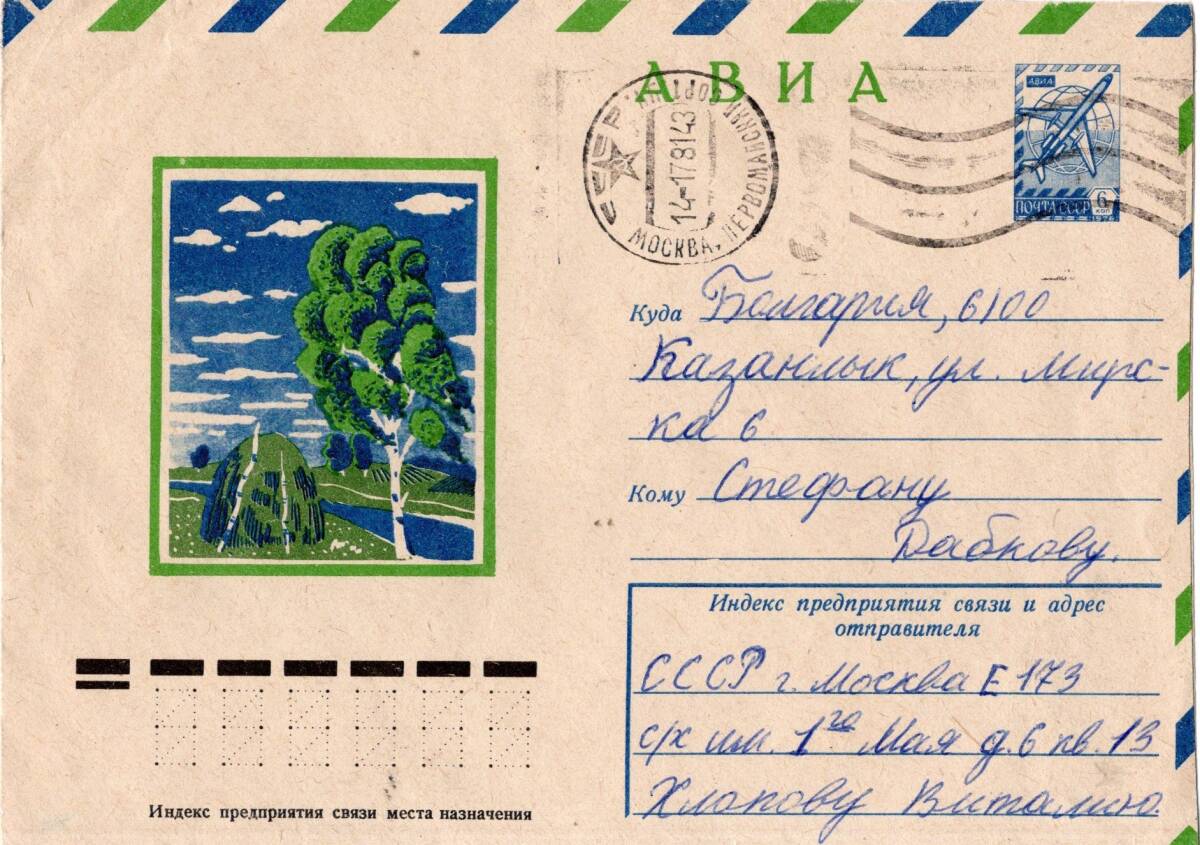 АВИА
АВИА
ПОЧТА СССР 6 КОП
1976
СССР
14-178143
МОСКВА, ПЕРВОМАЙСКИЙ
Куда Болгария, 6100
Казанлык, ул. Мирс-
ка 6
Кому Стефану
Дабкову.
Индекс предприятия связи и адрес
отправителя
СССР г. Москва Е 173
с/х им. 1го Мая д. 6 кв. 13
Хлапову Виталию
Индекс предприятия связи места назначения